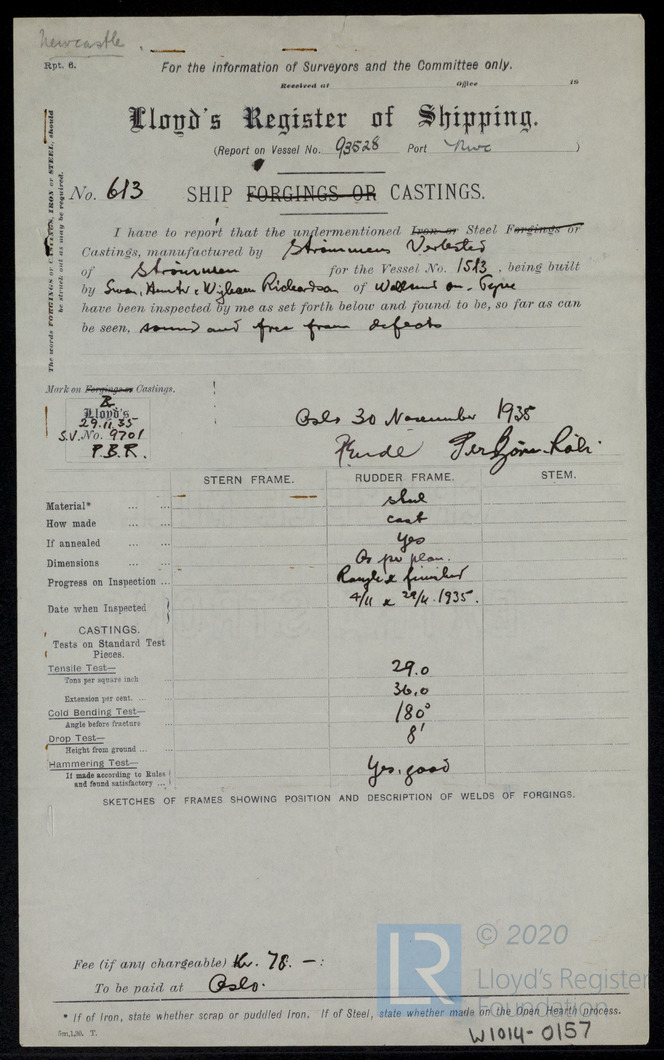 Newcastle
Rpt. 6.
For the information of Surveyors and the Committee only.
Received at Office 19
Lloyd's Register of Shipping.
(Report on Vessel No. 93528 Port Nwc )
No. 613 SHIP FORGINGS OR CASTINGS.
The words FORGINGS or CASTINGS, IRON or STEEL, should be struck out as may be required.
I have to report that the undermentioned Iron or Steel Forgings or
Castings, manufactured by Strömmens Verksted
of Strömmen for the Vessel No. 1513, being built
by Swan, Hunter & Wigham Richardson of Wallsend on Tyne
have been inspected by me as set forth below and found to be, so far as can
be seen, sound and free from defects
Mark on Forgings or Castings.
Lloyd's
29.11.35
S.V. No. 9701
P.B.R.
Oslo 30 November 1935
STERN FRAME. RUDDER FRAME. STEM.
Material* ... ... steel
How made ... ... cast
If annealed ... ... Yes
Dimensions ... ... As per plan.
Progress on Inspection ... Rough & finished
Date when Inspected 4/11 & 29/11.1935.
CASTINGS.
Tests on Standard Test
Pieces.
Tensile Test—
Tons per square inch ... 29.0
Extension per cent. ... ... 36.0
Cold Bending Test—
Angle before fracture 180°
Drop Test—
Height from ground ... ... 8'
Hammering Test—
If made according to Rules
and found satisfactory ... Yes, good
SKETCHES OF FRAMES SHOWING POSITION AND DESCRIPTION OF WELDS OF FORGINGS.
Fee (if any chargeable) Kr. 78. – :
To be paid at Oslo.
* If of Iron, state whether scrap or puddled Iron. If of Steel, state whether made on the Open Hearth process.
5m,1,30. T.
W1014-0157
LR
© 2020
Lloyd's Register
Foundation